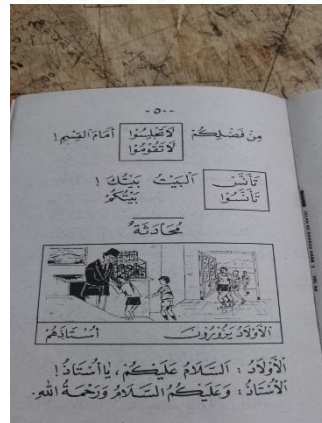 -٥٠-
مِنْ فَضْلِكُمْ لَا تَجْلِسُوا أَمَامَ الْقِسْمِ !
لَا تَقُومُوا
تَأَنَّسْ اَلْبَيْتُ بَيْتُكَ !
تَأَنَّسُوا بَيْتُكُمْ
مُحَادَثَةٌ
اَلْأَوْلَادُ يَزُورُونَ أُسْتَاذَهُمْ
اَلْأَوْلَادُ : اَلسَّلَامُ عَلَيْكُمْ، يَا أُسْتَاذُ !
اَلْأُسْتَاذُ : وَعَلَيْكُمُ السَّلَامُ وَرَحْمَةُ اللهِ.